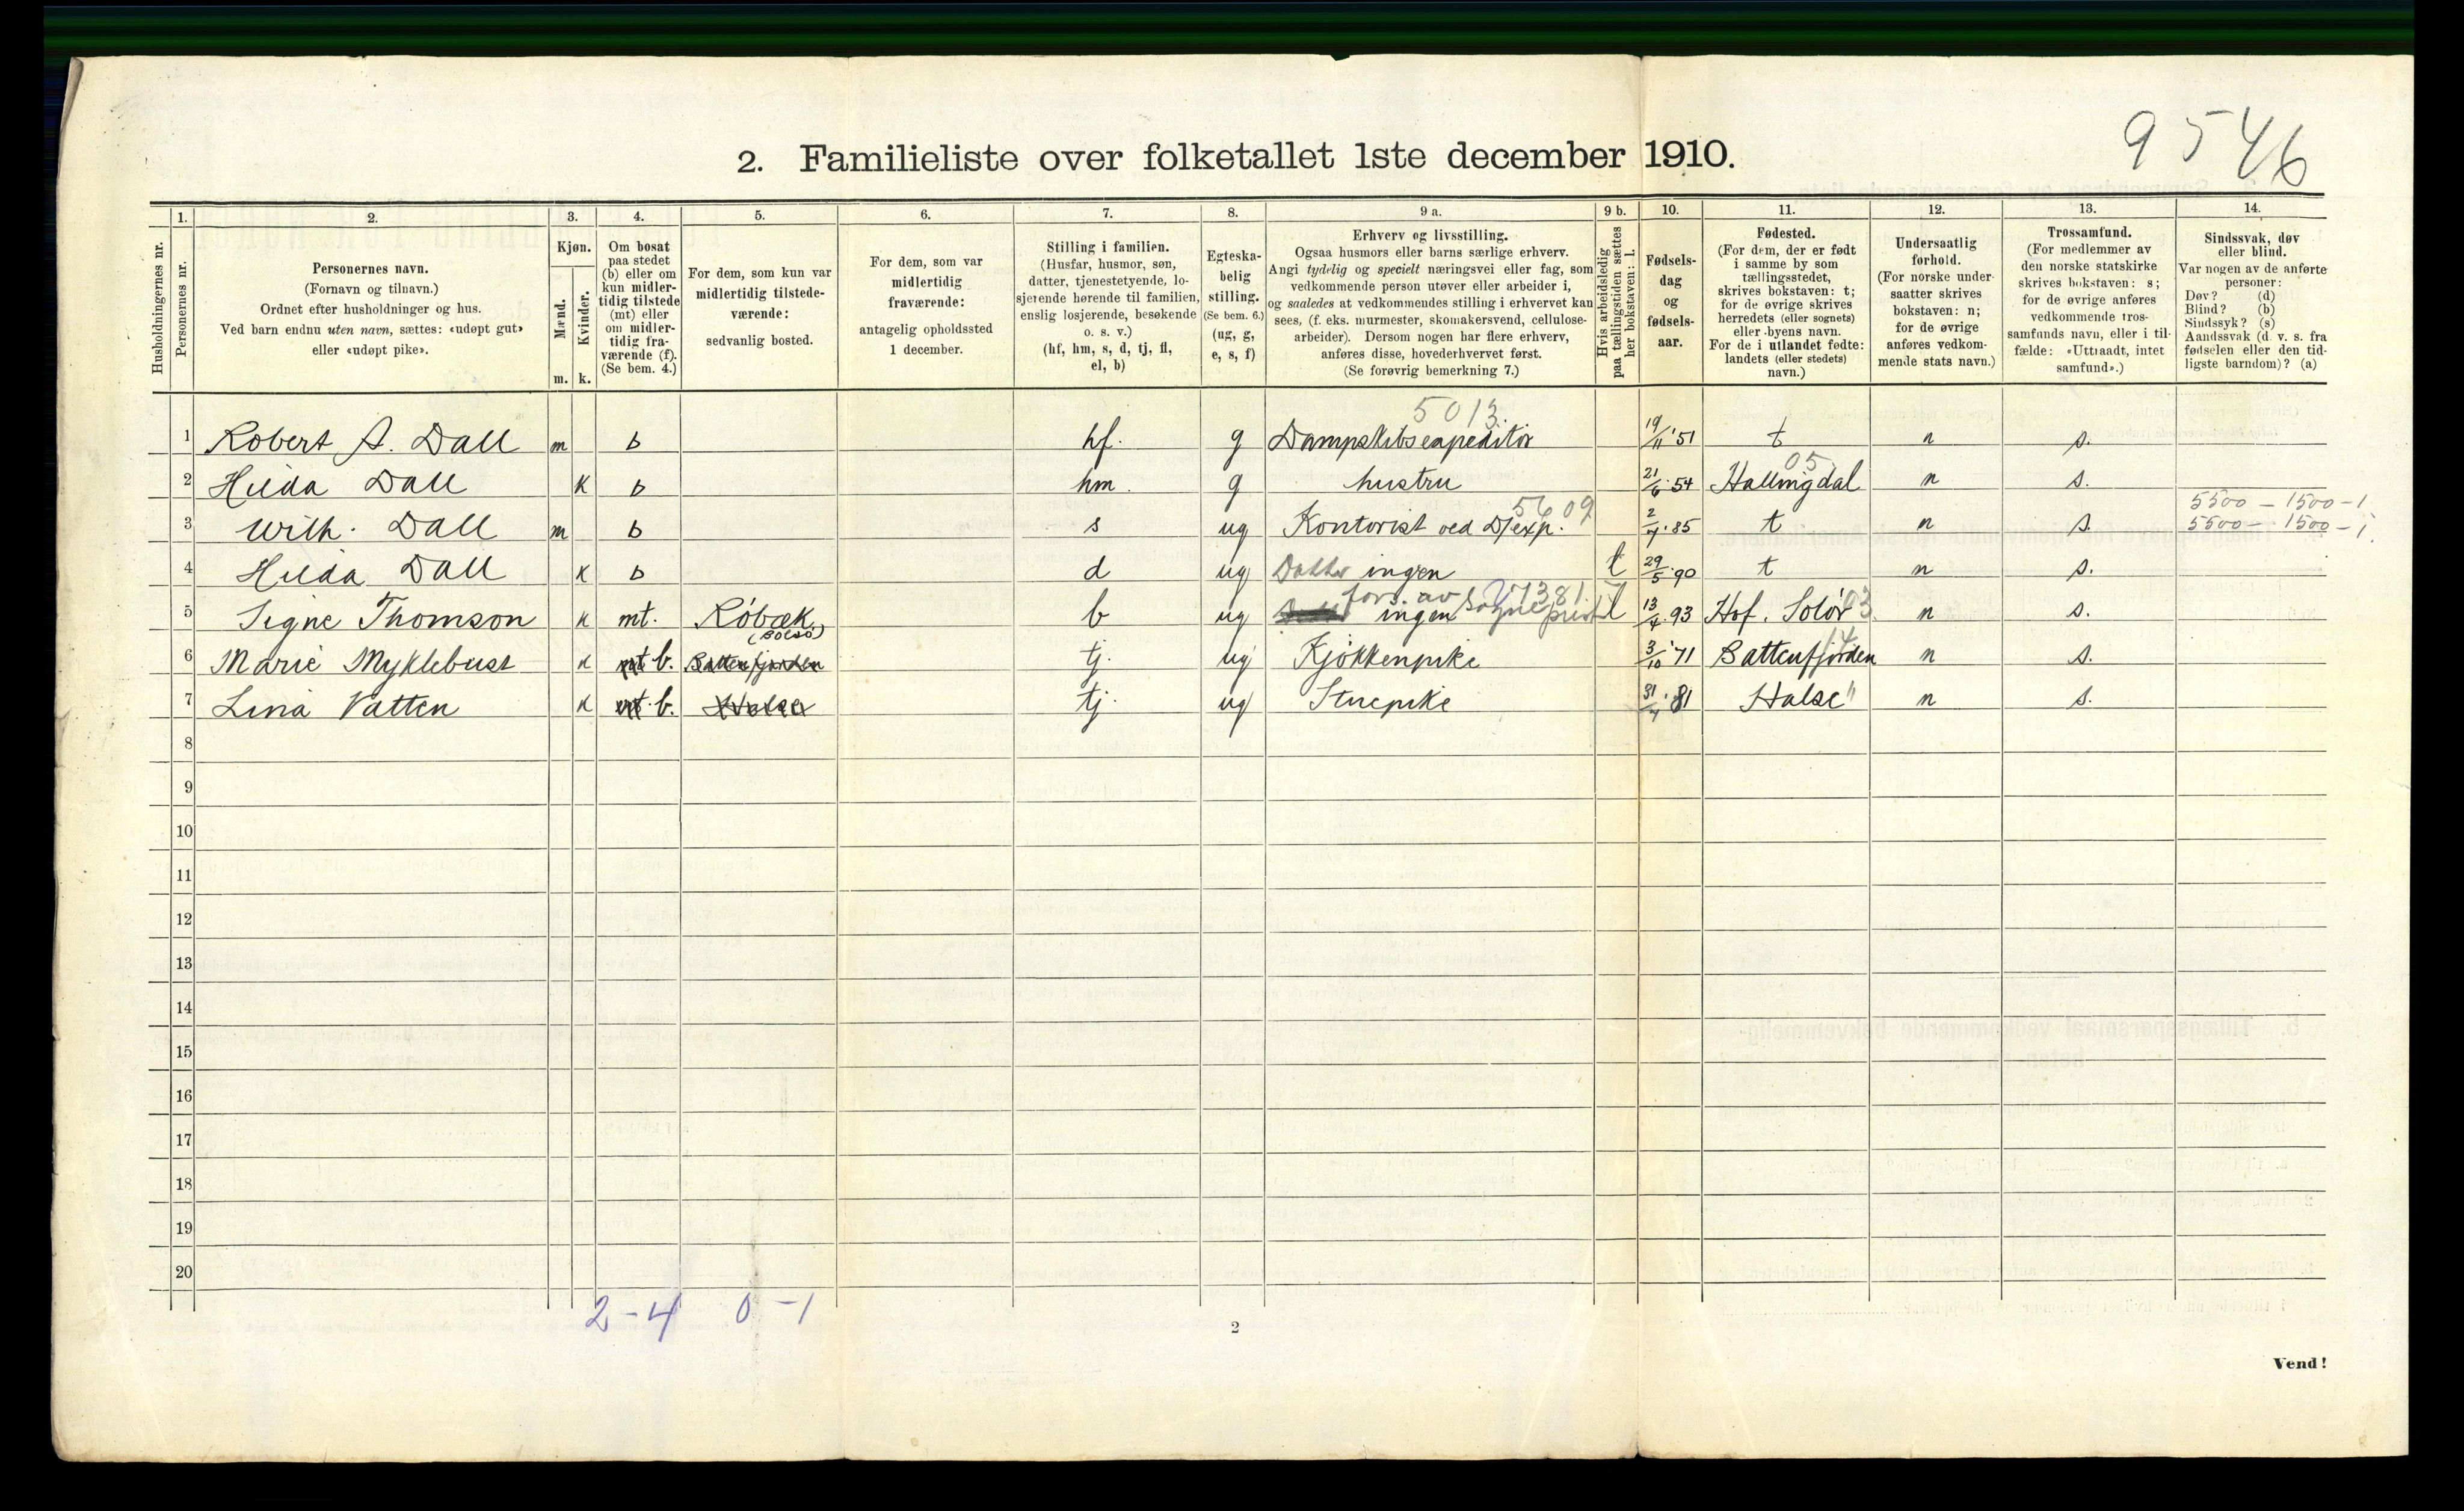 9546
2. Familieliste over folketallet 1ste december 1910.
Husholdningernes nr.
1. Personernes nr.
2. Personernes navn. (Fornavn og tilnavn.) Ordnet efter husholdninger og hus. Ved barn endnu uten navn, sættes: «udøpt gut» eller «udøpt pike».
3. Kjøn. Mænd. m. Kvinder. k.
4. Om bosat paa stedet (b) eller om kun midlertidig tilstede (mt) eller om midlertidig fraværende (f). (Se bem. 4.)
5. For dem, som kun var midlertidig tilstedeværende: sedvanlig bosted.
6. For dem, som var midlertidig fraværende: antagelig opholdssted 1 december.
7. Stilling i familien. (Husfar, husmor, søn, datter, tjenestetyende, losjerende hørende til familien, enslig losjerende, besøkende o. s. v.) (hf, hm, s, d, tj, fl, el, b)
8. Egteskabelig stilling. (Se bem. 6.) (ug, g, e, s, f)
9 a. Erhverv og livsstilling. Ogsaa husmors eller barns særlige erhverv. Angi tydelig og specielt næringsvei eller fag, som vedkommende person utøver eller arbeider i, og saaledes at vedkommendes stilling i erhvervet kan sees, (f. eks. murmester, skomakersvend, cellulosearbeider). Dersom nogen har flere erhverv, anføres disse, hovederhvervet først. (Se forøvrig bemerkning 7.)
9 b. Hvis arbeidsledig paa tællingstiden sættes her bokstaven: l.
10. Fødselsdag og fødselsaar.
11. Fødested. (For dem, der er født i samme by som tællingsstedet, skrives bokstaven: t; for de øvrige skrives herredets (eller sognets) eller byens navn. For de i utlandet fødte: landets (eller stedets) navn.)
12. Undersaatlig forhold. (For norske undersaatter skrives bokstaven: n; for de øvrige anføres vedkommende stats navn.)
13. Trossamfund. (For medlemmer av den norske statskirke skrives bokstaven: s; for de øvrige anføres vedkommende trossamfunds navn, eller i tilfælde: «Uttraadt, intet samfund».)
14. Sindssvak, døv eller blind. Var nogen av de anførte personer: Døv? (d) Blind? (b) Sindssyk? (s) Aandssvak (d. v. s. fra fødselen eller den tidligste barndom)? (a)
5013.
1 Robert A. Dall m b hf. g Dampskibsexpeditör 19/11 '51 t n s.
05
2 Hilda Dall k b hm. g hustru 21/6 54 Hallingdal n s.
5609 5500 - 1500 - 1
3 Wilh. Dall m b s ug Kontorist ved D/exp. 2/7 85 t n s. 5500 - 1500 - 1
4 Hilda Dall k b d ug Datter ingen l 29/5 90 t n s.
fors. av Sogneprest 03
5 Signe Thomson k mt. Röbæk (Bolsö) b ug ingen l 13/4 93 Hof. Solör n s.
14
6 Marie Myklebust k mt b. Battenfjorden tj. ug Kjökkenpike 3/10 71 Battenfjorden n s.
7 Lina Vatten k mt b. Halse tj. ug Stuepike 31/7 81 Halse " n s.
8
9
10
11
12
13
14
15
16
17
18
19
20
2-4 0-1
2
Vend!